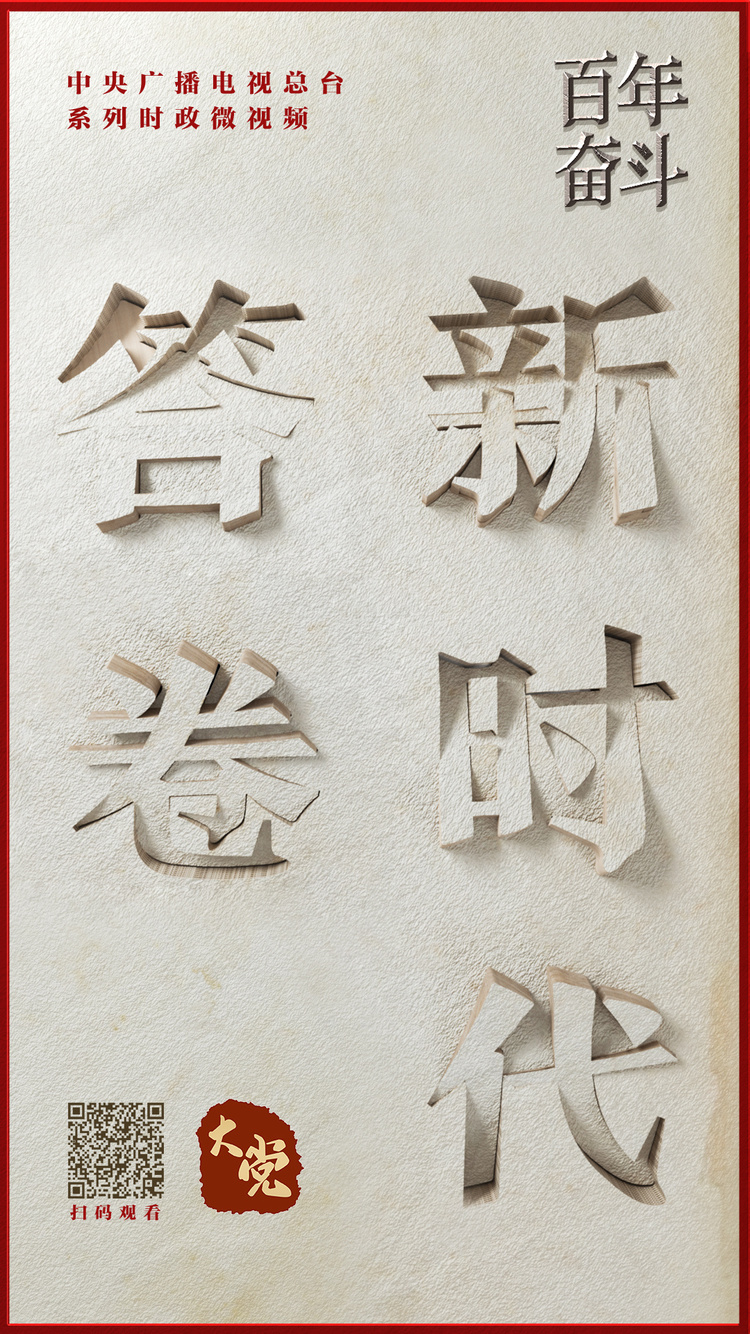 中央广播电视总台
系列时政微视频
百年
奋斗
新时代
答卷
扫码观看
大党